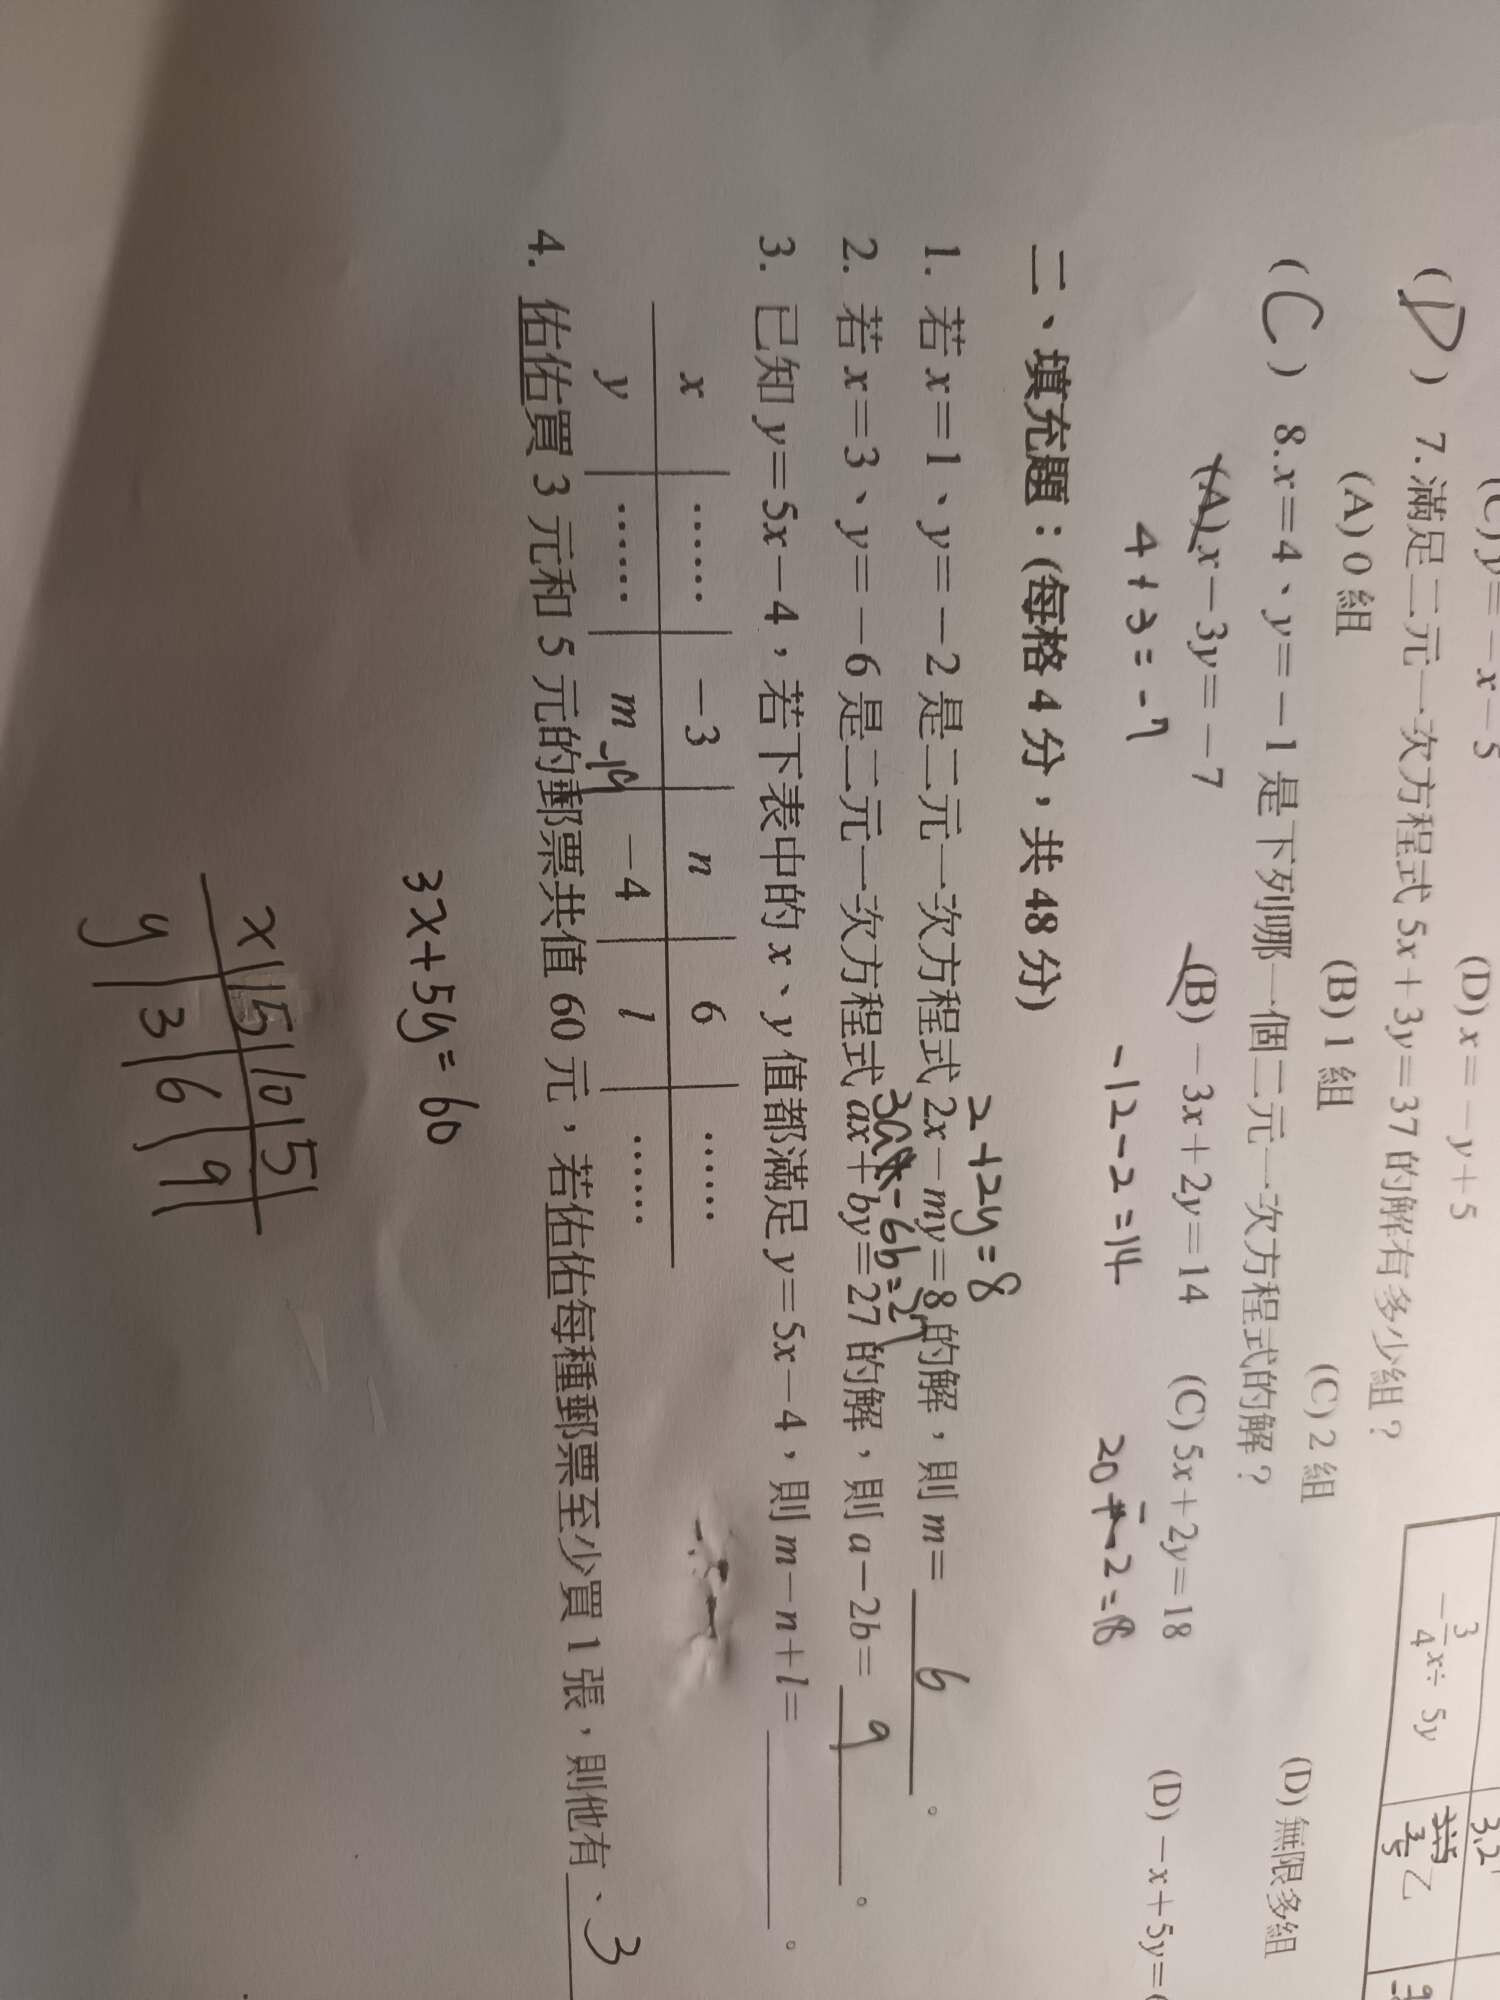 (C) y=-x-5 (D) x=-y+5
(D) 7. 滿足二元一次方程式 5x+3y=37 的解有多少組？
(A) 0 組 (B) 1 組 (C) 2 組 (D) 無限多組
(C) 8. x=4、y=-1 是下列哪一個二元一次方程式的解？
(A) x-3y=-7 (B) -3x+2y=14 (C) 5x+2y=18 (D) -x+5y=
4+3=-7 -12-2=14 20-2=18
3.2
-3/4x÷ 5y 3/5 乙
二、填充題：(每格 4 分，共 48 分)
2+2y=8
1. 若 x=1、y=-2 是二元一次方程式 2x-my=8 的解，則 m= 6 。
3a-6b=27
2. 若 x=3、y=-6 是二元一次方程式 ax+by=27 的解，則 a-2b= 9 。
3. 已知 y=5x-4，若下表中的 x、y 值都滿足 y=5x-4，則 m-n+l= 。
x …… -3 n 6 ……
y …… m -19 -4 l ……
4. 佑佑買 3 元和 5 元的郵票共值 60 元，若佑佑每種郵票至少買 1 張，則他有 、3
3x+5y=60
x 15 10 5
y 3 6 9